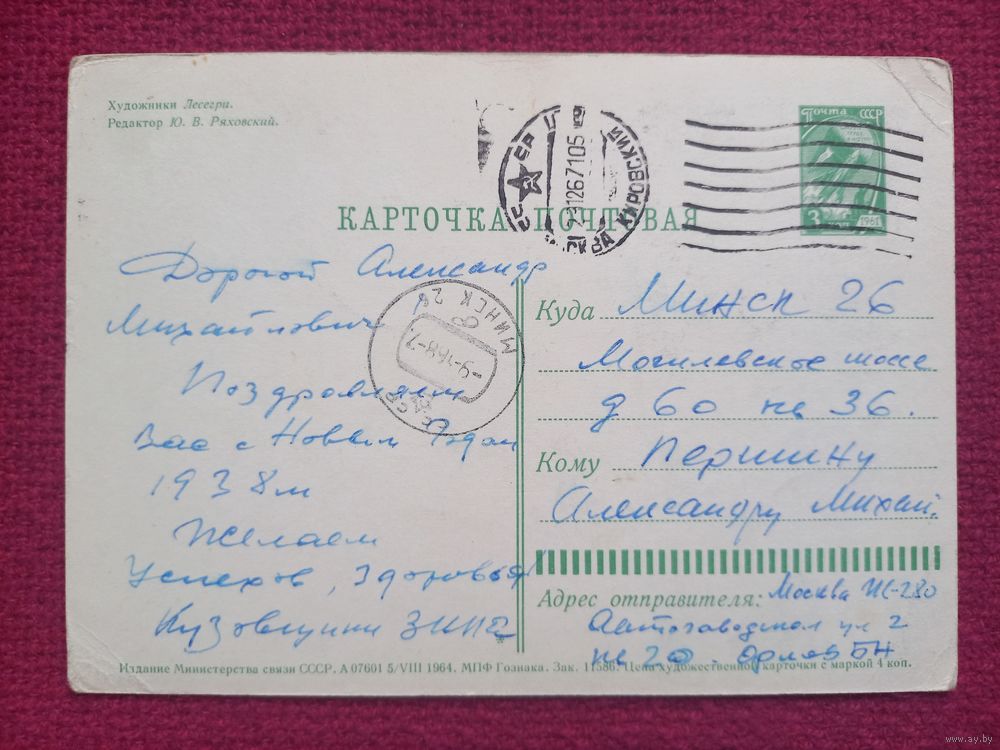 Художники Лесегри.
Редактор Ю. В. Ряховский.
ПОЧТА СССР
3
1961
КИРОВСКИЙ
КАРТОЧКА ПОЧТОВАЯ
Дорогой Александр
Михайлович
Поздравляем
Вас с Новым Годом
1938м
Желаем
Успехов, здоровья
МИНСК 26
Куда Минск 26
Могилевское шоссе
д 60 кв 36.
Кому Першину
Александру Михай.
Адрес отправителя: Москва Ж-280
Автозаводская ул 2
кв 20 Орлов БН
Издание Министерства связи СССР. А 07601 5/VIII 1964. МПФ Гознака. Зак. 11586. Цена художественной карточки с маркой 4 коп.
www.ay.by